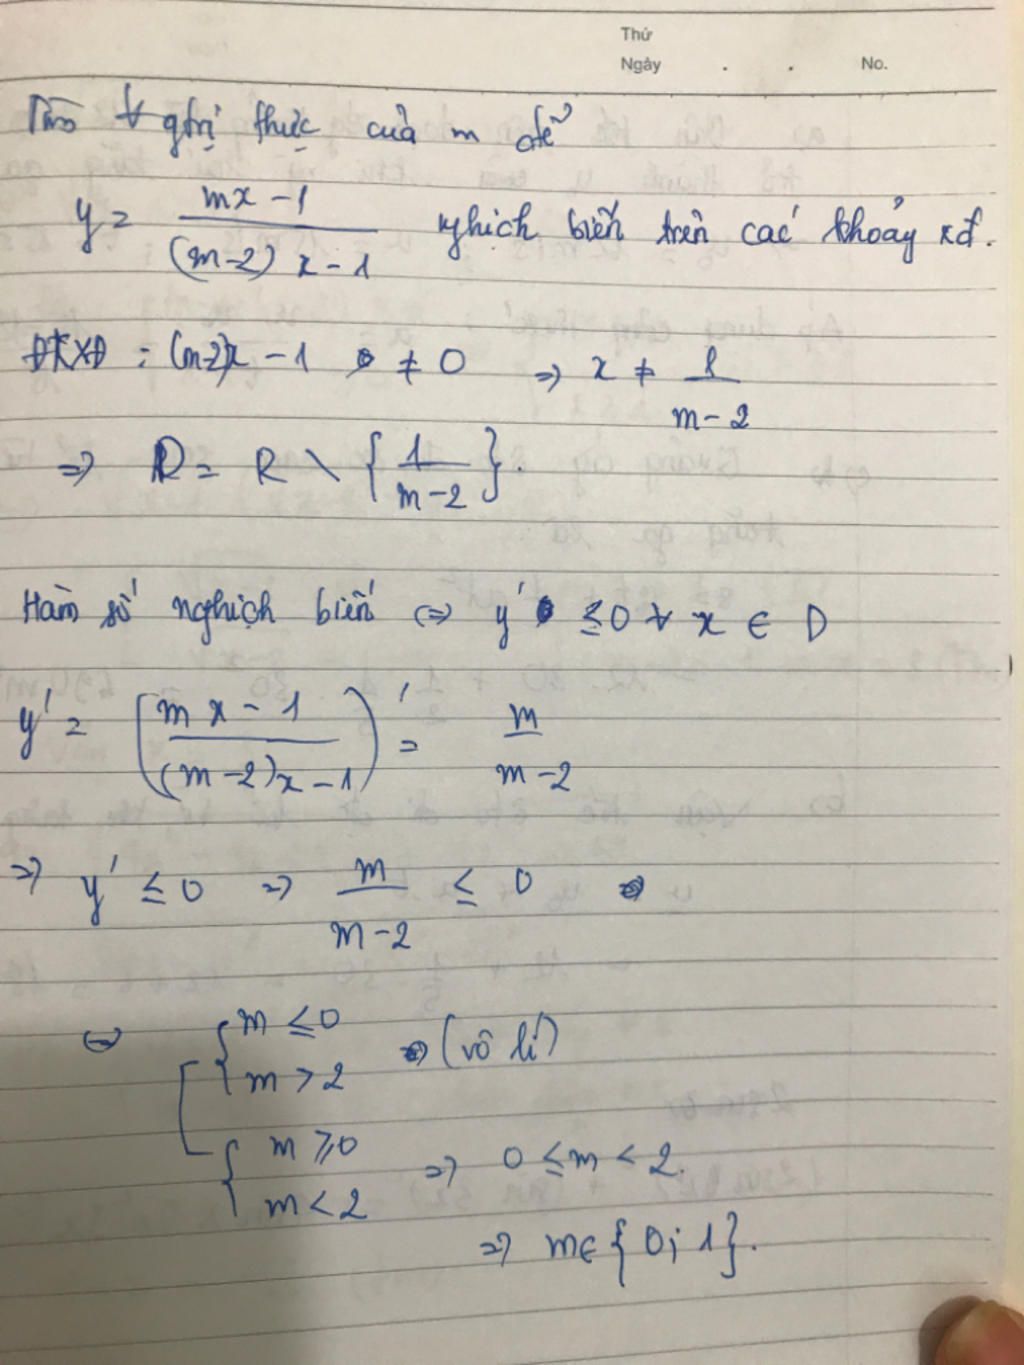 Thứ
Ngày . . No.
Tìm ∀ gtrị thực của m để
y = \frac{mx - 1}{(m-2)x - 1} nghịch biến trên các khoảng xđ.
ĐKXĐ : (m-2)x - 1 ≠ 0 ⇒ x ≠ \frac{1}{m-2}
⇒ D = R \ { \frac{1}{m-2} }.
Hàm số nghịch biến ⇔ y' ≤ 0 ∀ x ∈ D
y' = ( \frac{mx - 1}{(m-2)x - 1} )' = \frac{m}{m-2}
⇒ y' ≤ 0 ⇒ \frac{m}{m-2} ≤ 0
⇔ [ { m ≤ 0
m > 2 (vô lí)
{ m ≥ 0
m < 2 ⇒ 0 ≤ m < 2.
⇒ m ∈ { 0 ; 1 }.